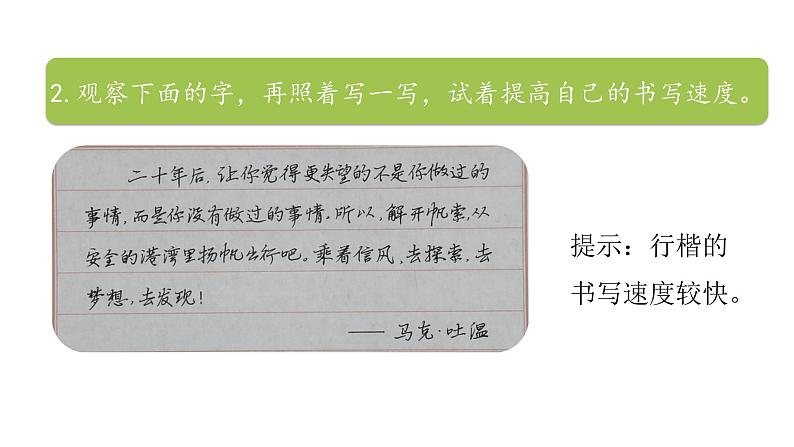 2.观察下面的字，再照着写一写，试着提高自己的书写速度。
二十年后，让你觉得更失望的不是你做过的
事情，而是你没有做过的事情。所以，解开帆索，从
安全的港湾里扬帆出行吧。乘着信风，去探索，去
梦想，去发现！
—— 马克·吐温
提示：行楷的
书写速度较快。